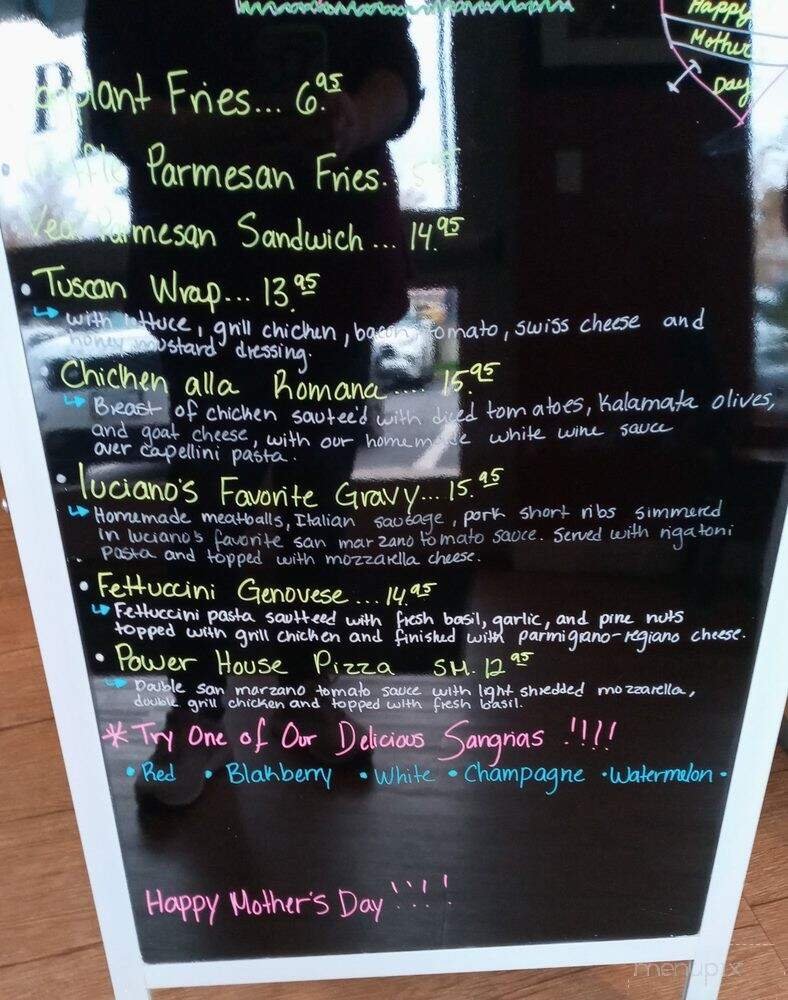 Happy
Mother
Day
Fries... 6.95
Parmesan Fries.
Parmesan Sandwich... 14.95
• Tuscan Wrap... 13.95
with lettuce, grill chicken, bacon, tomato, swiss cheese and
honey mustard dressing.
• Chicken alla Romana.... 15.95
Breast of chicken sauteé'd with diced tomatoes, Kalamata olives,
and goat cheese, with our homemade white wine sauce
over capellini pasta.
• Luciano's Favorite Gravy... 15.95
Homemade meatballs, Italian sausage, pork short ribs simmered
in luciano's favorite san marzano tomato sauce. Served with rigatoni
pasta and topped with mozzarella cheese.
• Fettuccini Genovese... 14.95
Fettuccini pasta sautteed with fresh basil, garlic, and pine nuts
topped with grill chicken and finished with parmigiano-regiano cheese.
• Power House Pizza SM. 12.95
Double san marzano tomato sauce with light shredded mozzarella,
double grill chicken and topped with fresh basil.
* Try One of Our Delicious Sangrias !!!!
• Red • Blakberry • White • Champagne • Watermelon •
Happy Mother's Day !!!!
menupix